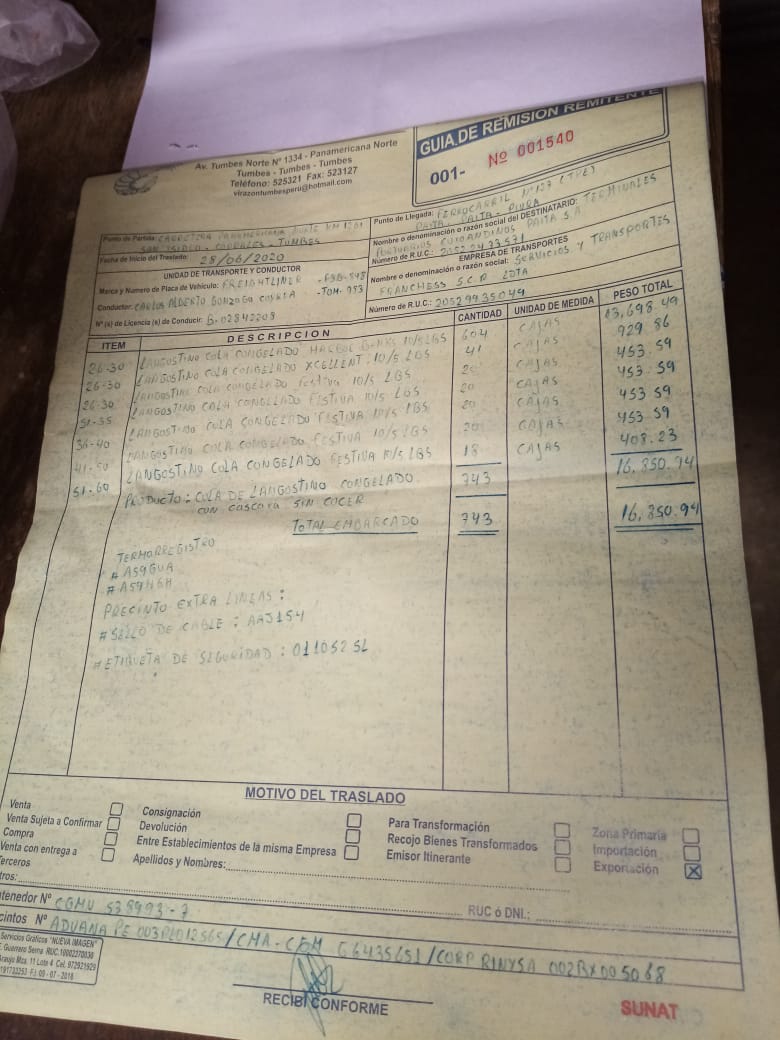 Av. Tumbes Norte Nº 1334 - Panamericana Norte
Tumbes - Tumbes - Tumbes
Teléfono: 525321 Fax: 523127
virazontumbesperú@hotmail.com
GUIA DE REMISIÓN REMITENTE
001- Nº 001540
Punto de Partida: CARRETERA PANAMERICANA NORTE KM 1261
SAN ISIDRO - CORRALES - TUMBES
Fecha de Inicio del Traslado: 25/06/2020
UNIDAD DE TRANSPORTE Y CONDUCTOR
Marca y Numero de Placa de Vehículo: FREIGHTLINER
Conductor: CARLOS ALBERTO GONZAGA CORREA - TOM-953
Nº (s) de Licencia (s) de Conducir: B-02842208
Punto de Llegada: FERROCARRIL Nº 127 (TPE)
PAITA - PAITA - PIURA
Nombre o denominación o razón social del DESTINATARIO: TERMINALES
PORTUARIOS EUROANDINOS PAITA S.A
Número de R.U.C:
EMPRESA DE TRANSPORTES
Nombre o denominación o razón social: SERVICIOS Y TRANSPORTES
FRANCHESS S.C.R LDTA
Número de R.U.C: 20529935044
ITEM DESCRIPCION CANTIDAD UNIDAD DE MEDIDA PESO TOTAL
26-30 LANGOSTINO COLA CONGELADO HARBOR BANKS 10/5 LBS 604 CAJAS 13,698.49
26-30 LANGOSTINO COLA CONGELADO XCELLENT 10/5 LBS 41 CAJAS 929.86
26-30 LANGOSTINO COLA CONGELADO FESTIVA 10/5 LBS 20 CAJAS 453.59
31-35 LANGOSTINO COLA CONGELADO FESTIVA 10/5 LBS 20 CAJAS 453.59
36-40 LANGOSTINO COLA CONGELADO FESTIVA 10/5 LBS 20 CAJAS 453.59
41-50 LANGOSTINO COLA CONGELADO FESTIVA 10/5 LBS 20 CAJAS 453.59
51-60 LANGOSTINO COLA CONGELADO FESTIVA 10/5 LBS 18 CAJAS 408.23
PRODUCTO: COLA DE LANGOSTINO CONGELADO 743 16,850.94
CON CASCARA SIN COCER
TOTAL EMBARCADO 743 16,850.94
TERMORREGISTRO
# A59GUA
# A59H6H
PRECINTO EXTRA LINEAS:
# SELLO DE CABLE: AAJ154
# ETIQUETA DE SEGURIDAD: 0110525L
MOTIVO DEL TRASLADO
Venta Consignación Para Transformación Zona Primaria
Venta Sujeta a Confirmar Devolución Recojo Bienes Transformados Importación
Compra Entre Establecimientos de la misma Empresa Emisor Itinerante Exportación X
Venta con entrega a Apellidos y Nombres:
Terceros
tros: RUC ó DNI.:
ntenedor Nº CGMU 538993-7
cintos Nº ADUANA PE 003PL012565/CMA-CGM G6435651/CORP RINYSA 002RX005068
Servicios Gráficos "NUEVA IMAGEN"
Guerrero Serna RUC.10002370030
Araujo Mza. 11 Lote 4 Cel. 972921929
RECIBI CONFORME
SUNAT